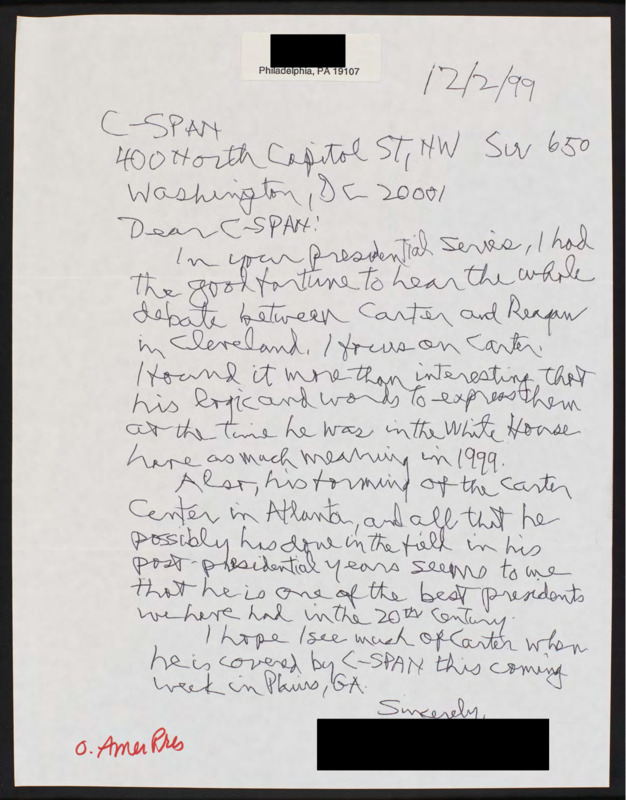 Philadelphia, PA 19107
12/2/99
C-SPAN
400 North Capitol ST, NW Suv 650
Washington, DC 20001
Dear C-SPAN:
In your presidential series, I had
the good fortune to hear the whole
debate between Carter and Reagan
in Cleveland. I focus on Carter.
I found it more than interesting that
his logic and words to express them
at the time he was in the White House
have as much meaning in 1999.
Also, his forming of the Carter
Center in Atlanta, and all that he
possibly has done in the field in his
post-presidential years seems to me
that he is one of the best presidents
we have had in the 20th Century.
I hope I see much of Carter when
he is covered by C-SPAN this coming
week in Plains, GA.
Sincerely,
O. Amer Pres